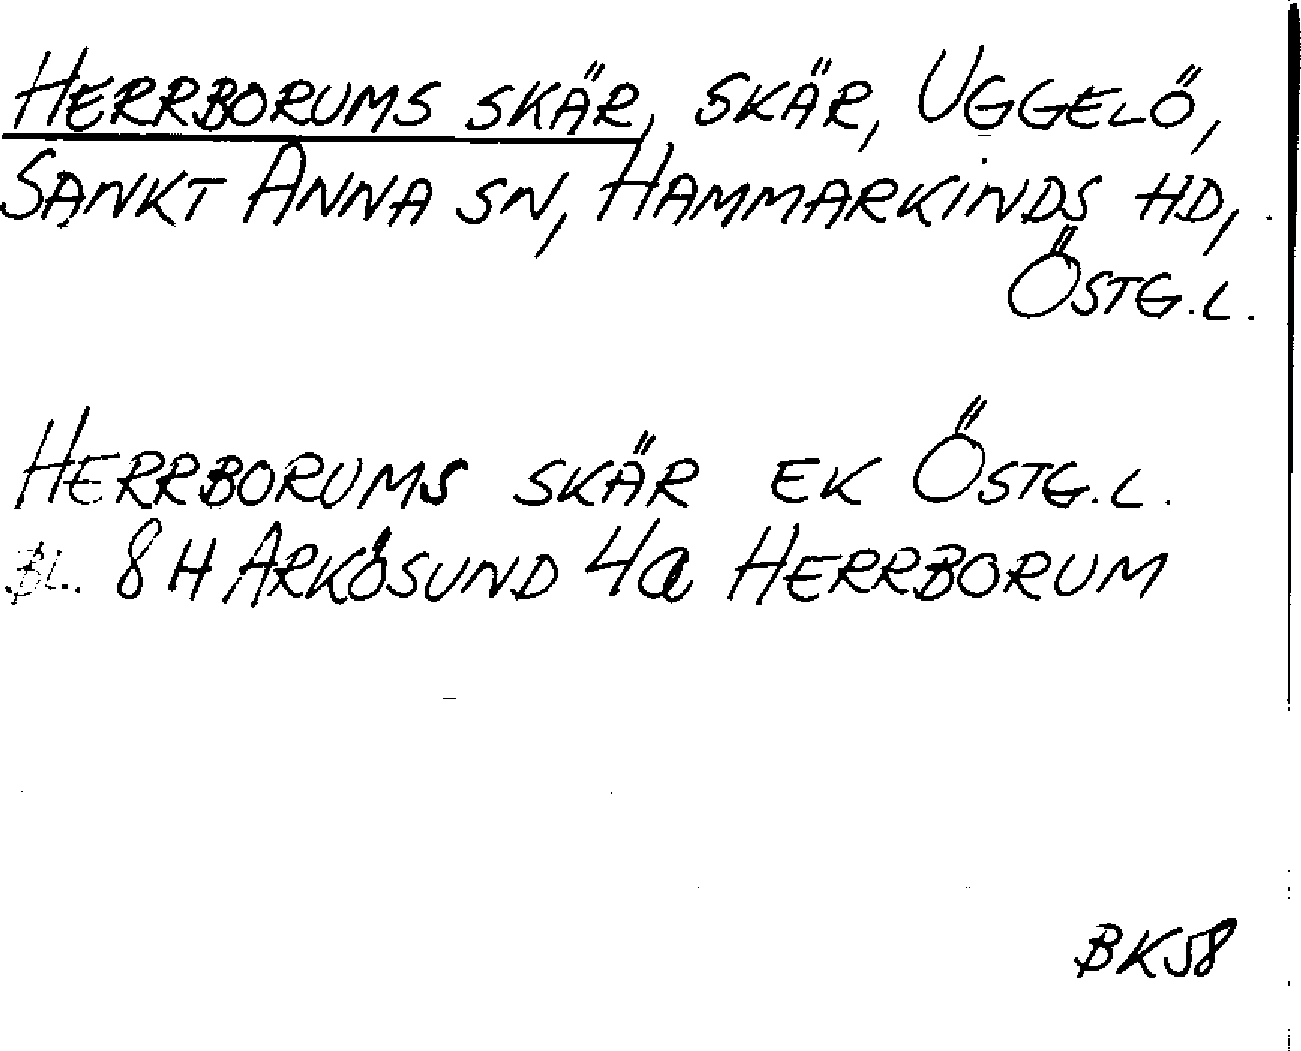 HERRBORUMS SKÄR, SKÄR, UGGELÖ,
SANKT ANNA SN, HAMMARKINDS HD,
ÖSTG.L.
HERRBORUMS SKÄR EK ÖSTG.L.
BL. 8H ARKÖSUND 4a HERRBORUM
BK58